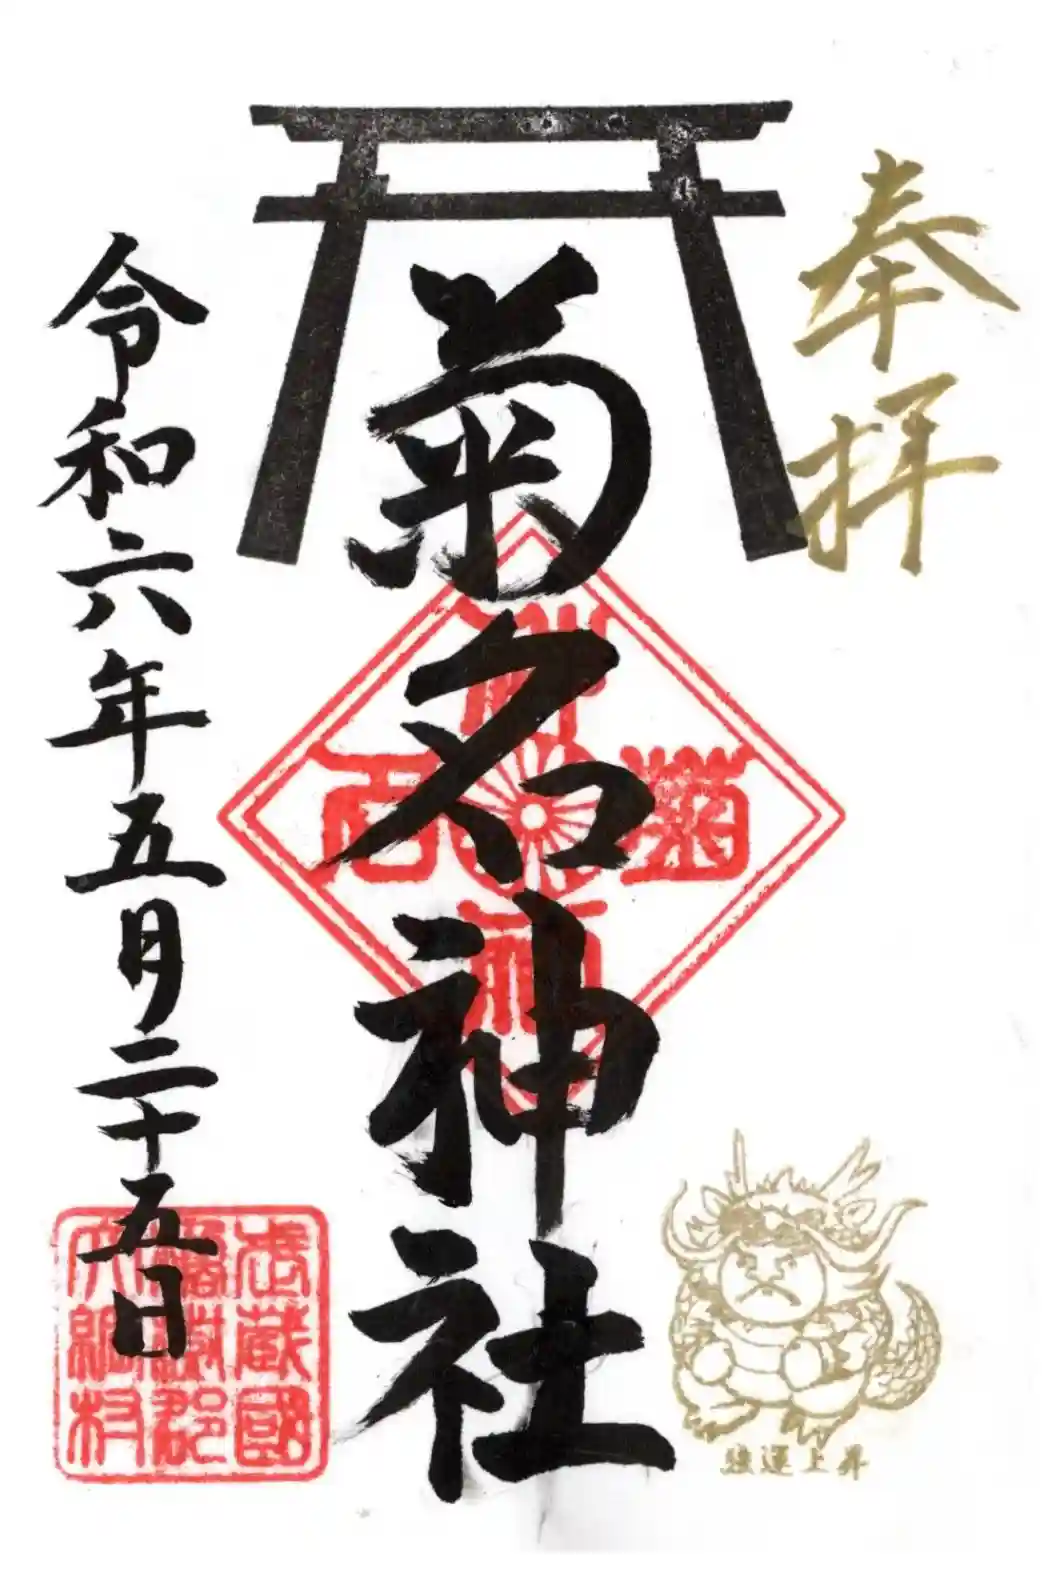 奉拝
菊名神社
令和六年五月二十五日
菊名神社
武蔵國
橘樹郡
大綱村
強運上昇